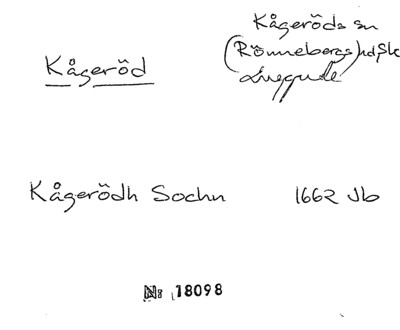 Kågeröds sn
(Rönnebergs) hd, Sk
Luggude
Kågeröd
Kågerödh Sochn 1662 Jb
Nr 18098